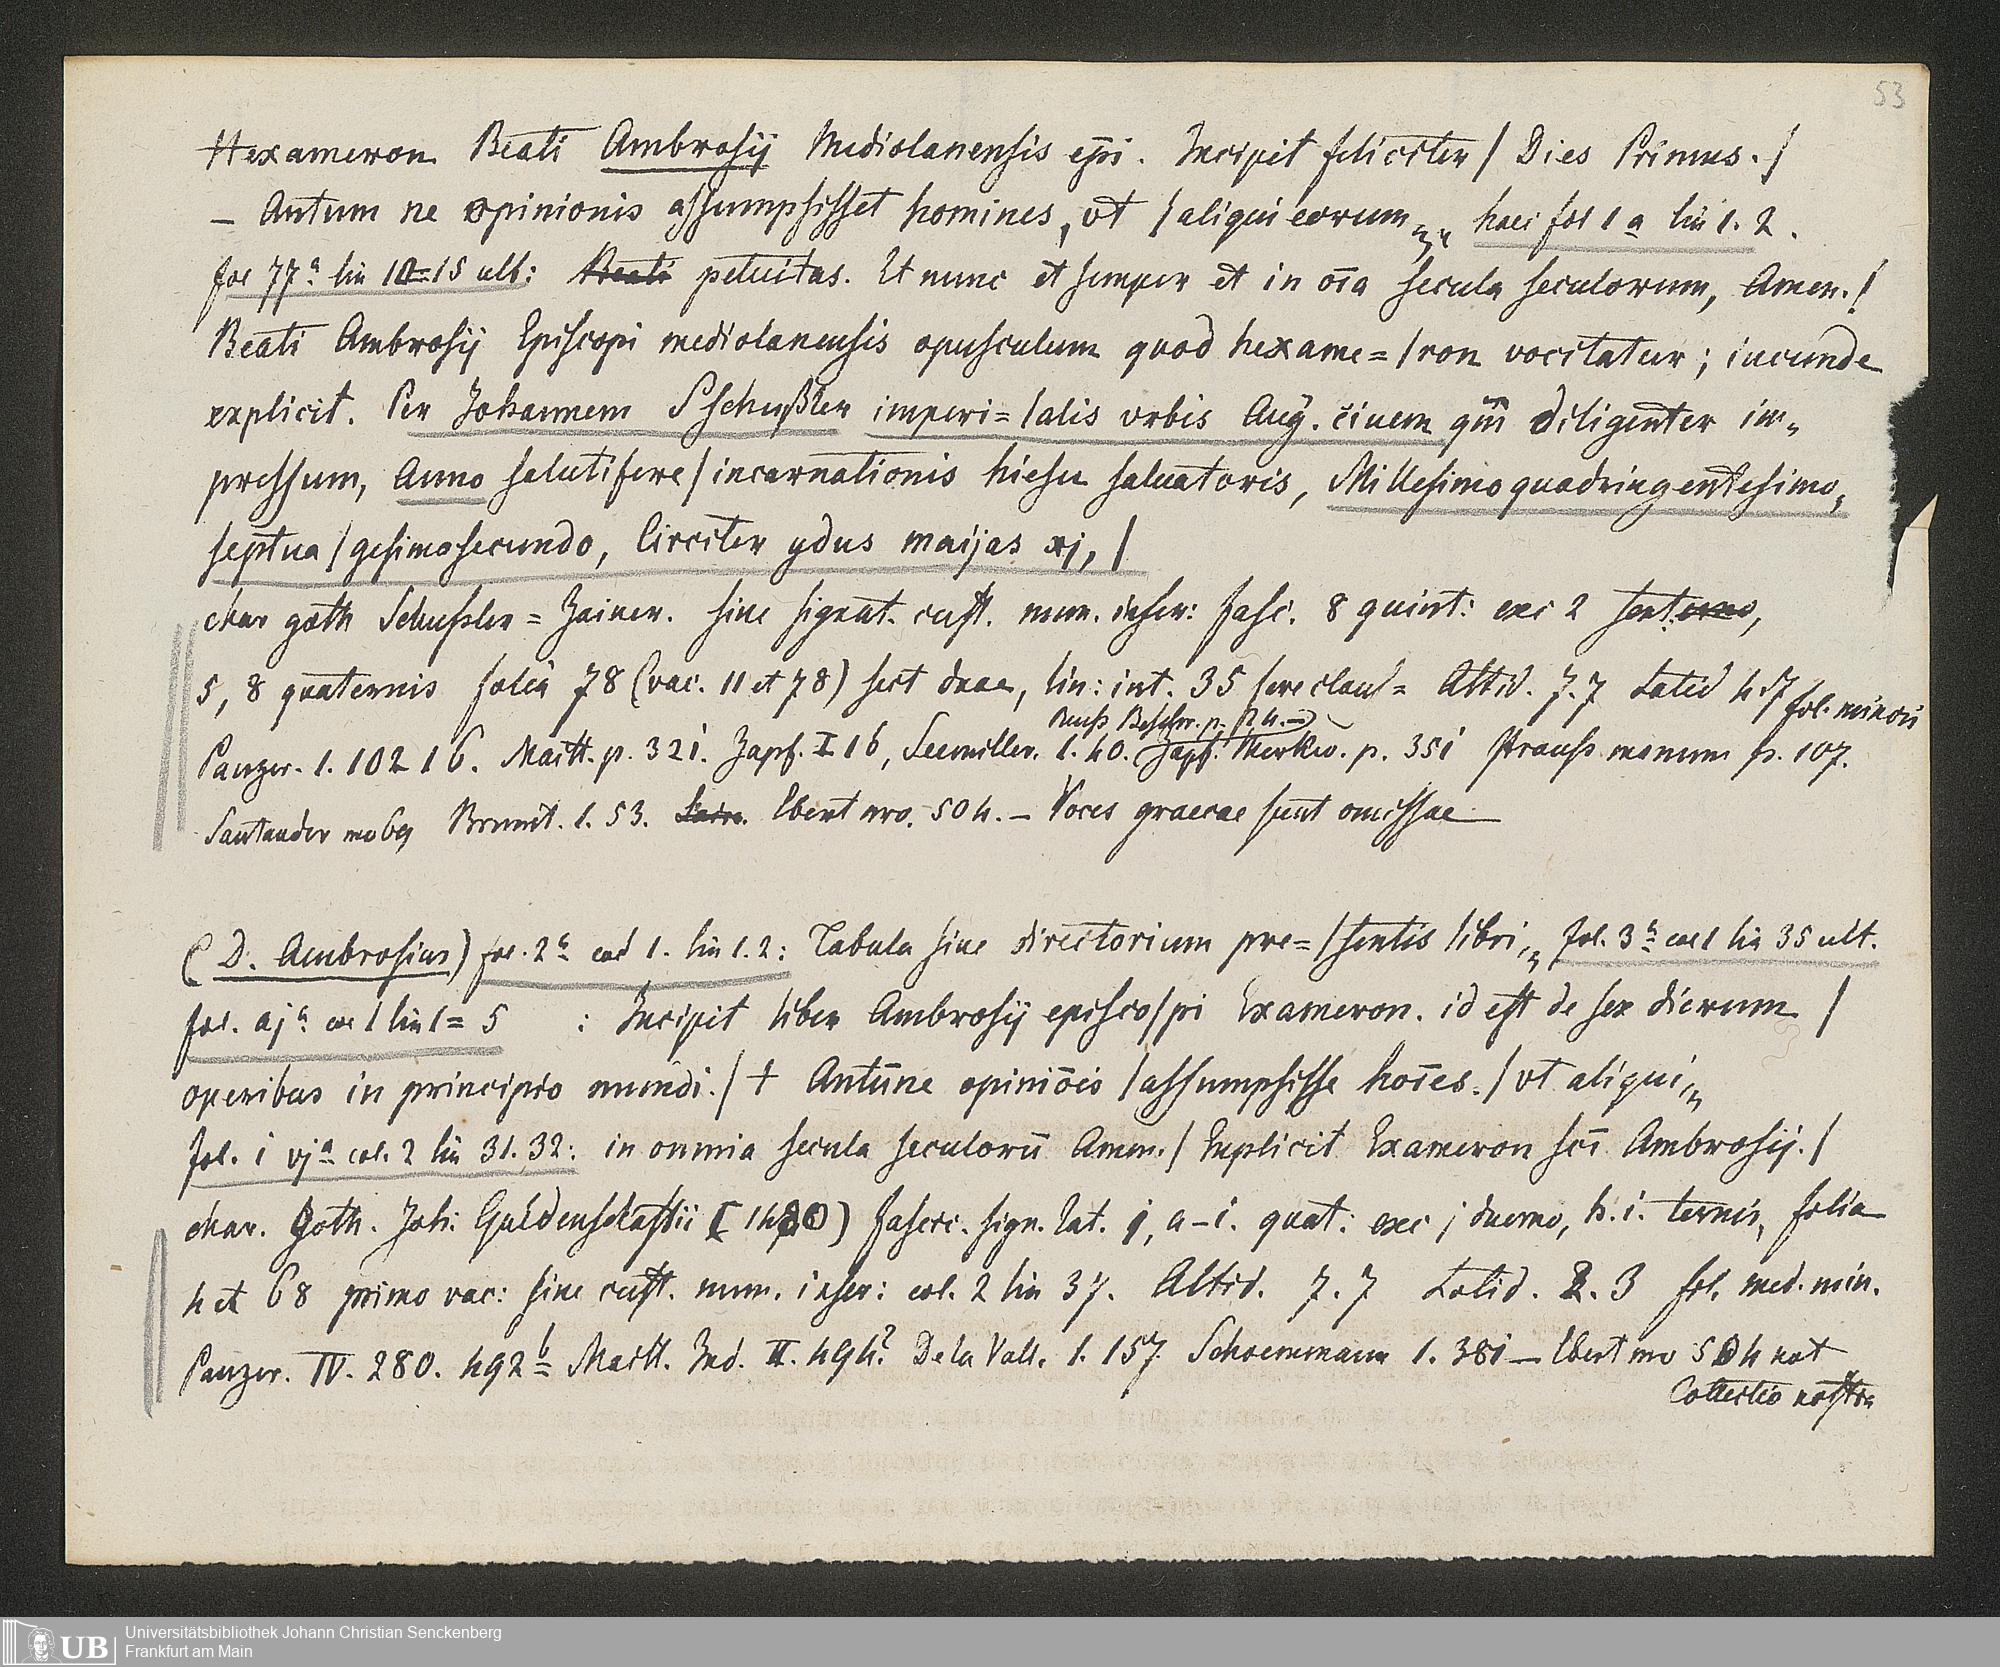 53
Hexameron Beati Ambrosij Mediolanensis epi. Incipit feliciter / Dies Primus. /
– Antum ne opinionis assumpsisset homines, vt / aliqui eorum „ haec fol 1 a lin 1. 2.
fol 77a lin 10=15 ult: Beati petuitas. Et nunc et semper et in oīa secula seculorum, Amen. /
Beati Ambrosij Episcopi mediolanensis opusculum quod hexame= / ron vocitatur; iucunde
explicit. Per Johannem Sschußler imperi= / alis vrbis Aug. civem qui diligenter im„
pressum, Anno salutifere / incarnationis hiesu saluatoris, Millesimo quadringentesimo,
septua / gesimosecundo, Circiter ydus maijas xj, /
char goth Schussler = Zainer. sine signat. cust. num. inser: fasc. 8 quint: exc 2
5, 8 quaternis folia 78 (vac. 11 et 78) sect duae, lin: int. 35 Altid. 7.7 Latid 4 d7 fol. minoris
Beschr. p. 24. –
Panzer. 1. 102 16. Maitt. p. 321. Zapf. I 16, Seemiller. 1. 40. Zapf. Merkw. p. 351 Strauss. monum p. 107.
Santander no 69 Brunet. 1. 53. Ebert nro. 504. – Voces graecae sunt omissae
(D. Ambrosius) fol. 2a col 1. lin 1. 2: Tabula sive directorium pre= / sentis libri „ fol. 3a col 1 lin 35 ult.
fol. aja col 1 lin 1= 5 : Incipit liber Ambrosij episco / pi Exameron. id est de sex dierum /
operibus in principio mundi. / † Antūne opiniōis / assumpsisse hoīes. / vt aliqui „
fol. i vja col. 2 lin 31. 32: in omnia secula seculorū Amen. / Explicit Exameron scī Ambrosij. /
char. Goth. Joh: Guldenschaffii (1480) fascic. sign. lat. j, a–i. quat: exc j duerno, h. i. ternis, folia
4 et 68 primo vac: sine cust. num. inser: col. 2 lin 37. Altid. 7. 7 Latid. 2. 3 fol. med. min.
Panzer. IV. 280. 492b Maitt. Ind. II. 494? De la Vall. 1. 157. Schoenemann 1. 381 – Ebert nro 504 not
Collectio nostra
UB
Universitätsbibliothek Johann Christian Senckenberg
Frankfurt am Main